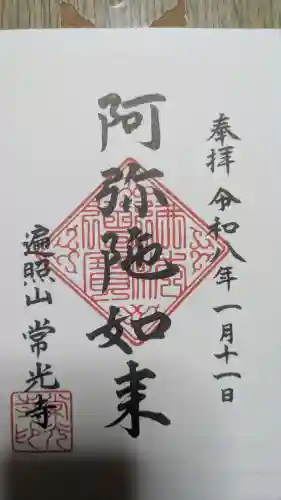 奉拝 令和八年一月十一日
阿弥陀如来
遍照山 常光寺